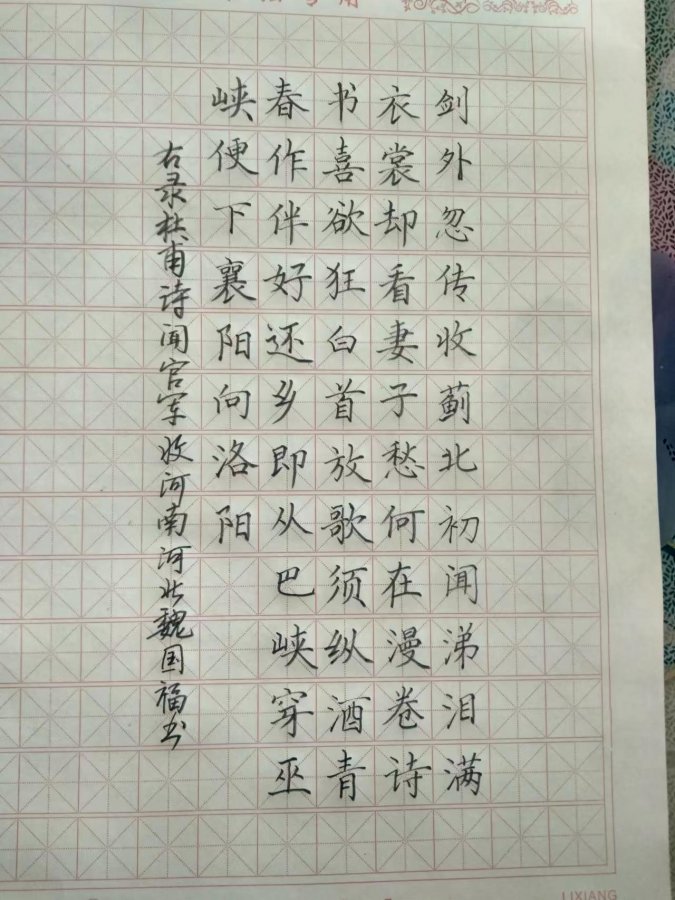 剑外忽传收蓟北初闻涕泪满
衣裳却看妻子愁何在漫卷诗
书喜欲狂白首放歌须纵酒青
春作伴好还乡即从巴峡穿巫
峡便下襄阳向洛阳
右录杜甫诗闻官军收河南河北魏国福书
LIXIANG